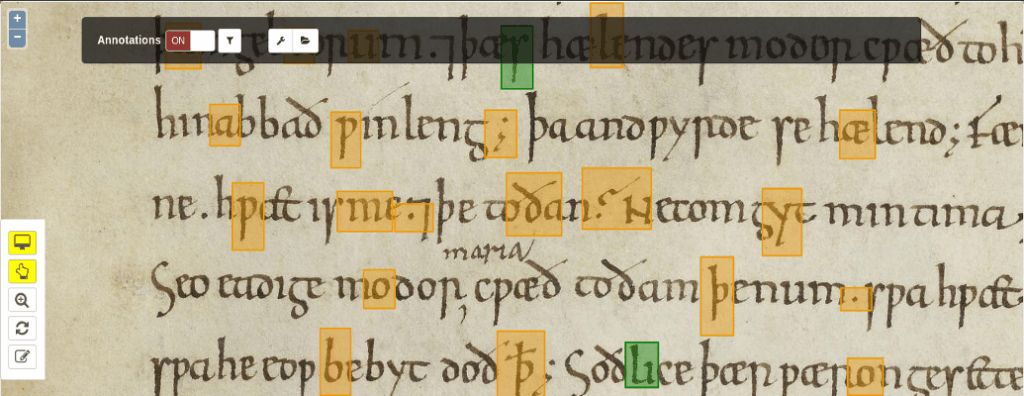 Annotations ON
⁊ þæs hælendes modor cƿæð to hi
hi nabbað ƿin leng; þa andƿyrde se hælend; La ƿæ
ne. hƿæt is me. ⁊ þe to ðan? Ne com gyt min tima,
maria
Seo eadige modor, cƿæð to ðam þenum. sƿa hƿæt
sƿa he eoƿ bebyt doð ꝥ; Soðlice þær ƿæron gesette